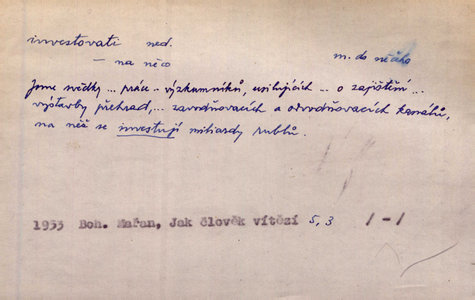 investovati ned.
— na něco m. do něčeho
Jsme svědky ... práce .. výzkumníků, usilujících .. o zajištění ..
výstavby přehrad, .. zavodňovacích a odvodňovacích kanálů,
na něž se investují miliardy rublů.
1953 Boh. Mařan, Jak člověk vítězí 5, 3 /-/